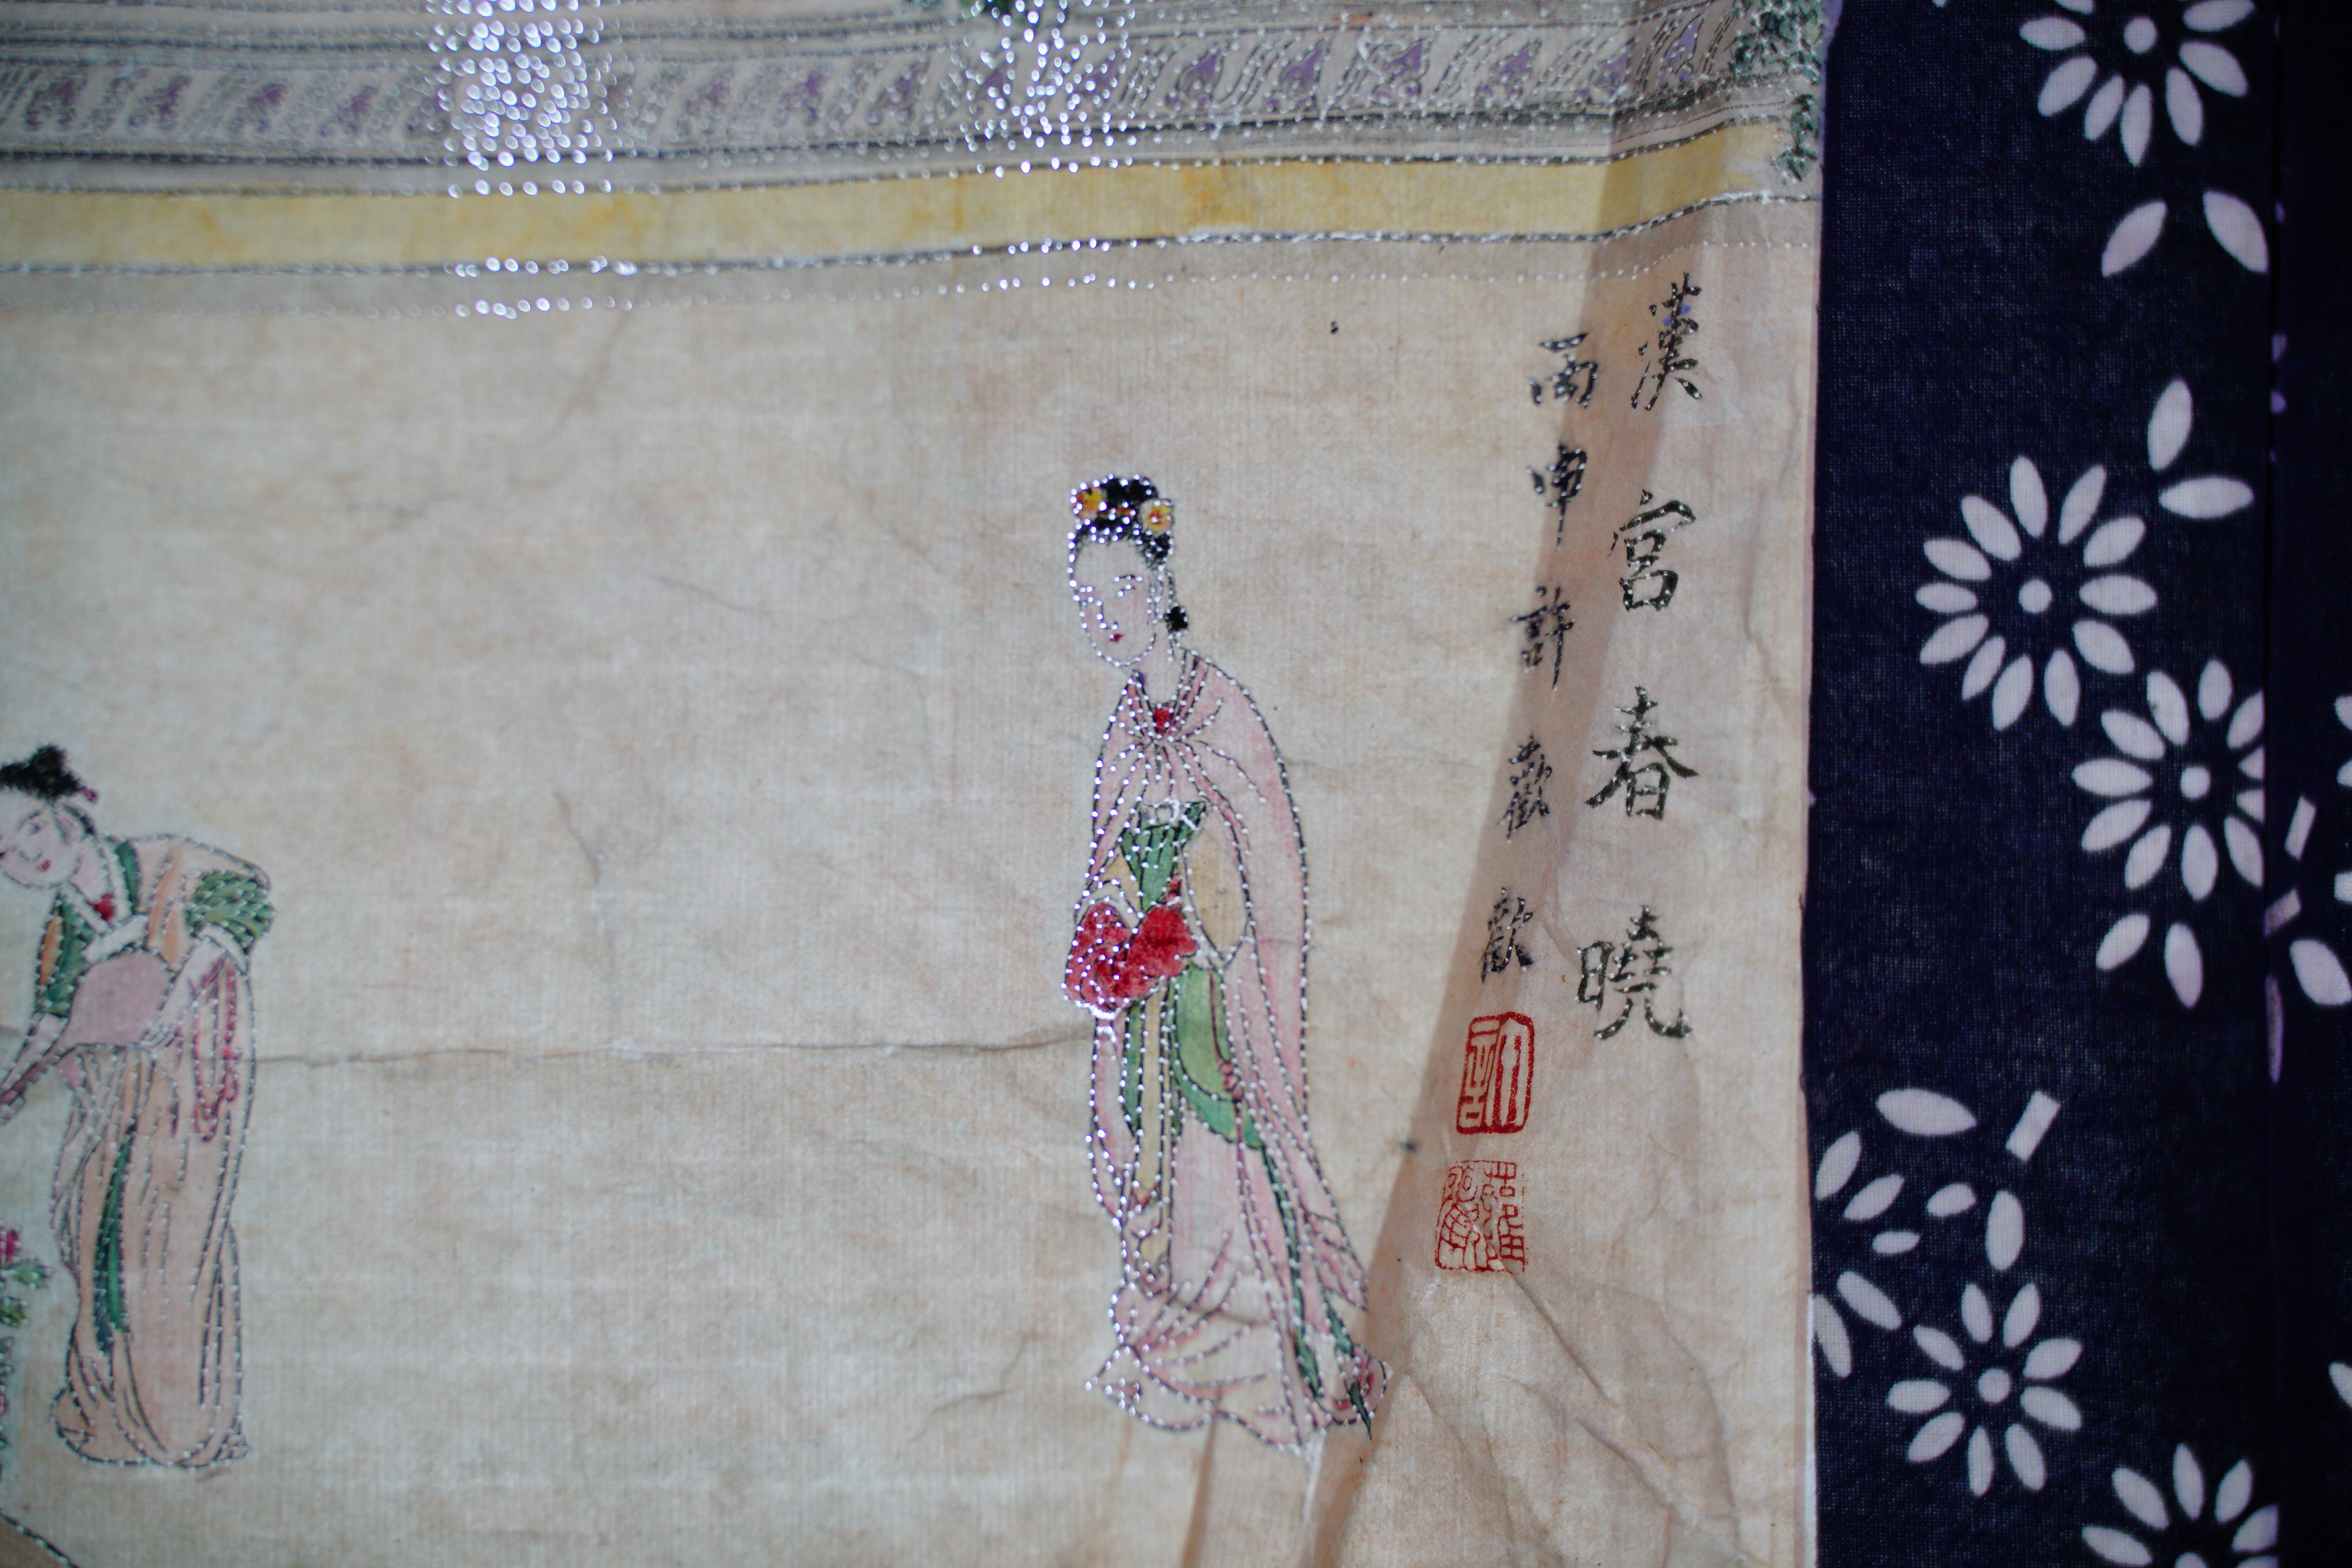 漢宮春曉
丙申許歡歡